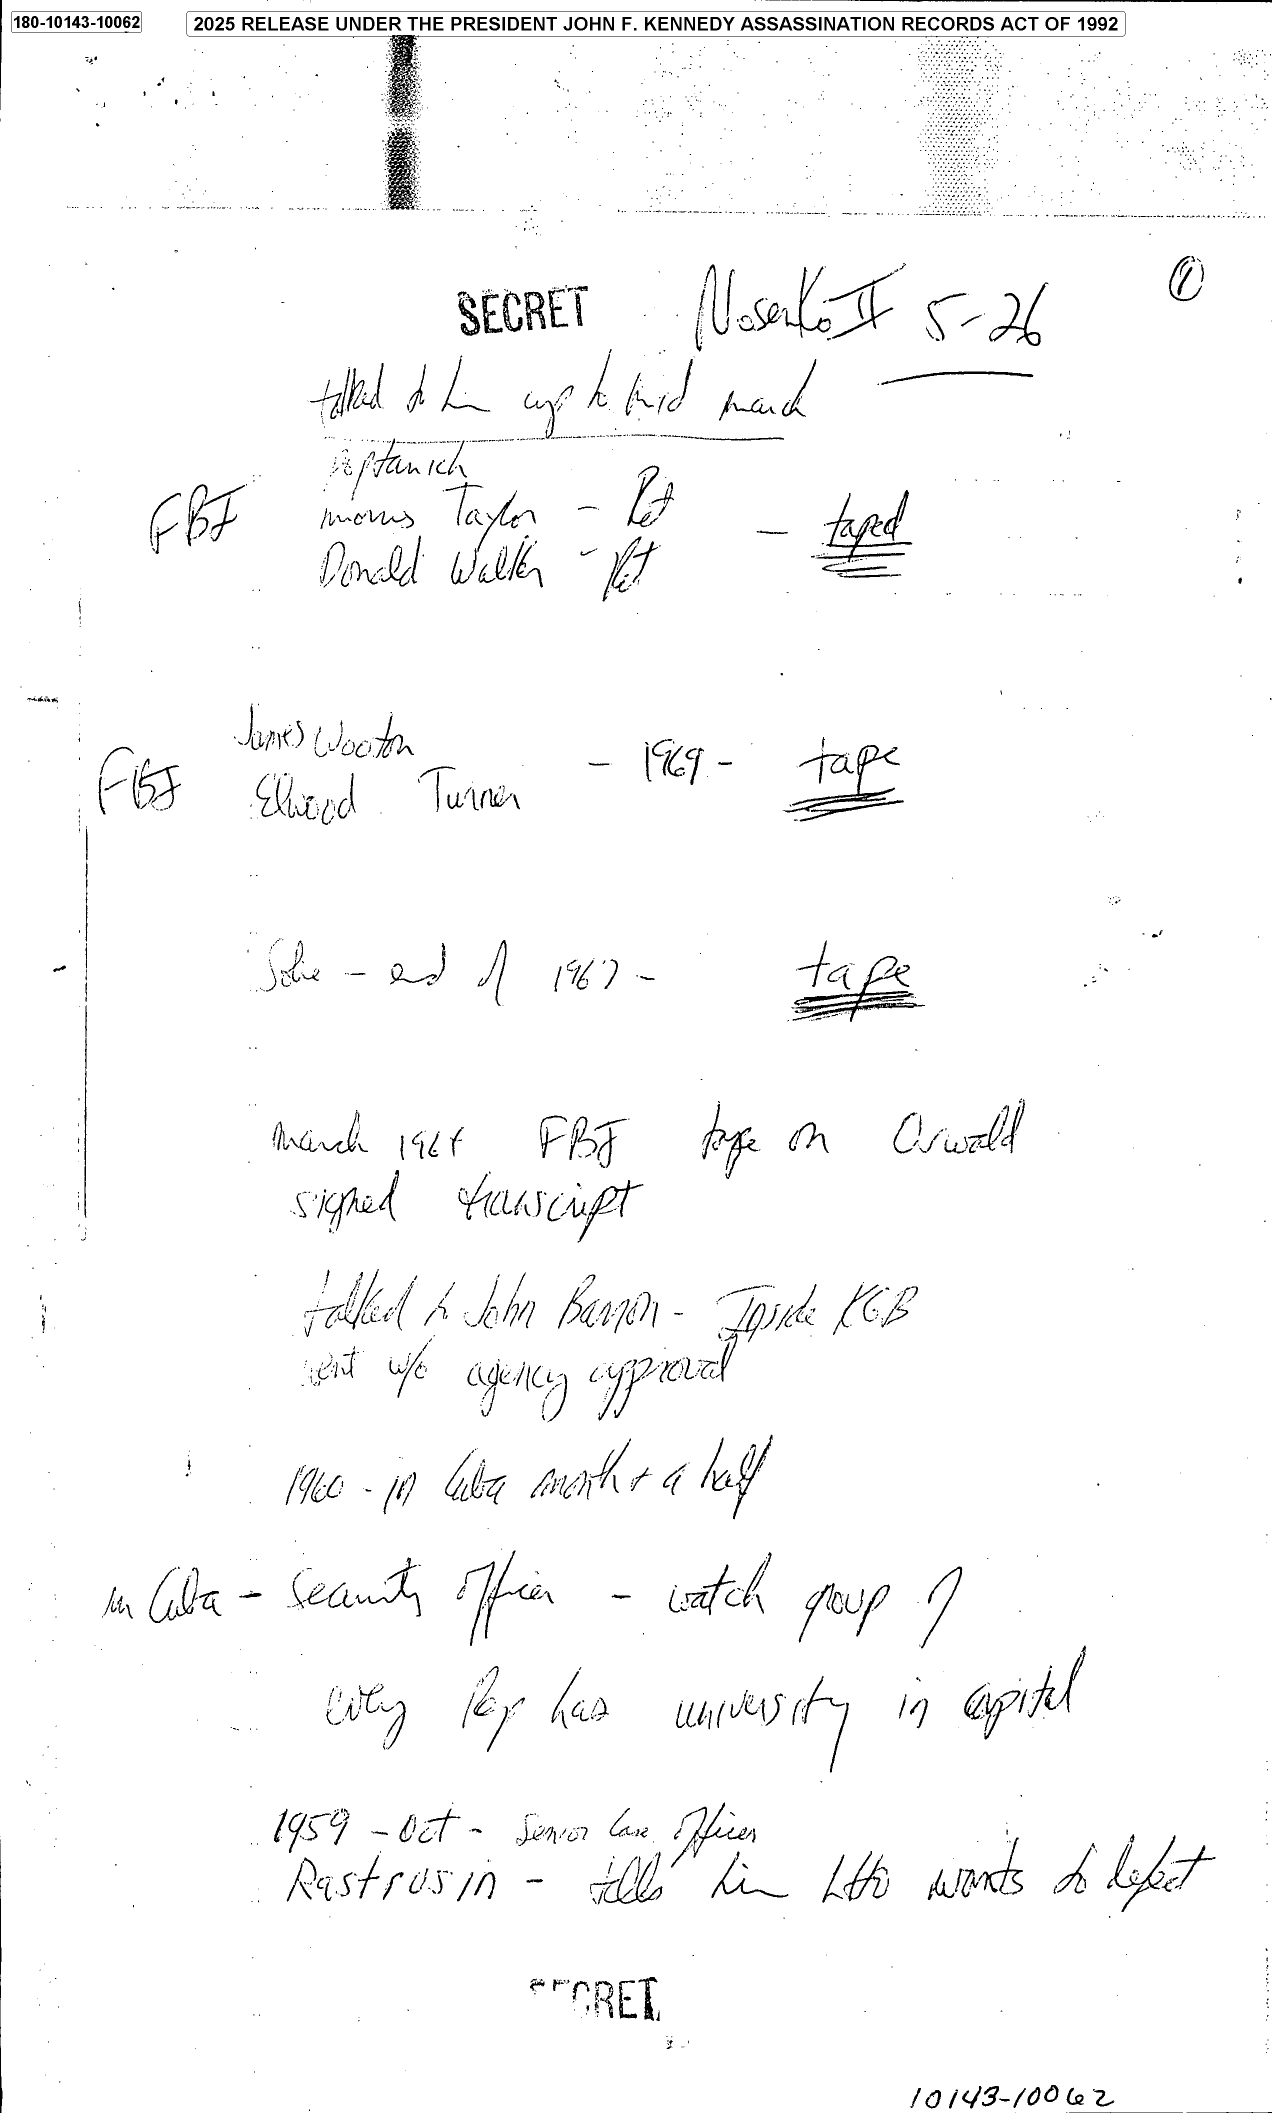 180-10143-10062
2025 RELEASE UNDER THE PRESIDENT JOHN F. KENNEDY ASSASSINATION RECORDS ACT OF 1992
SECRET Nosenko II 5-26 1
talked to him up to mid march
Poptanich
FBI morris Taylor - Ret - taped
Donald Walter - Ret
James Wooton
FBI Elwood Turner - 1969 - tape
Solie - end of 1967 - tape
March 1964 FBI tape on Oswald
signed transcript
talked to John Barron - Inside KGB
went w/o agency approval
1960 - in Cuba month + a half
in Cuba - Security officer - watch group of
every Rep has university in capital
1959 - Oct - Senior Case Officer
Rastrusin - tells him LHO wants to defect
SECRET
10143-10062